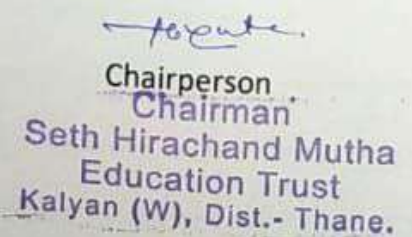 Chairperson
Chairman
Seth Hirachand Mutha
Education Trust
Kalyan (W), Dist.- Thane.